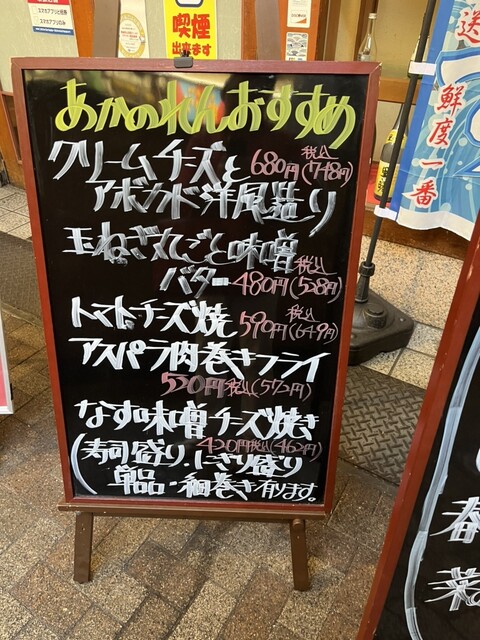 喫煙
出来ます
送
鮮度一番
あかのれんおすすめ
クリームチーズと 680円 税込(748円)
アボカド洋風造り
玉ねぎ丸ごと味噌
バター 480円 税込(528円)
トマトチーズ焼 590円 税込(649円)
アスパラ肉巻きフライ
520円 税込(572円)
なす味噌チーズ焼き
420円 税込(462円)
(寿司盛り、にぎり盛り
単品・細巻き有ります。
春
菜